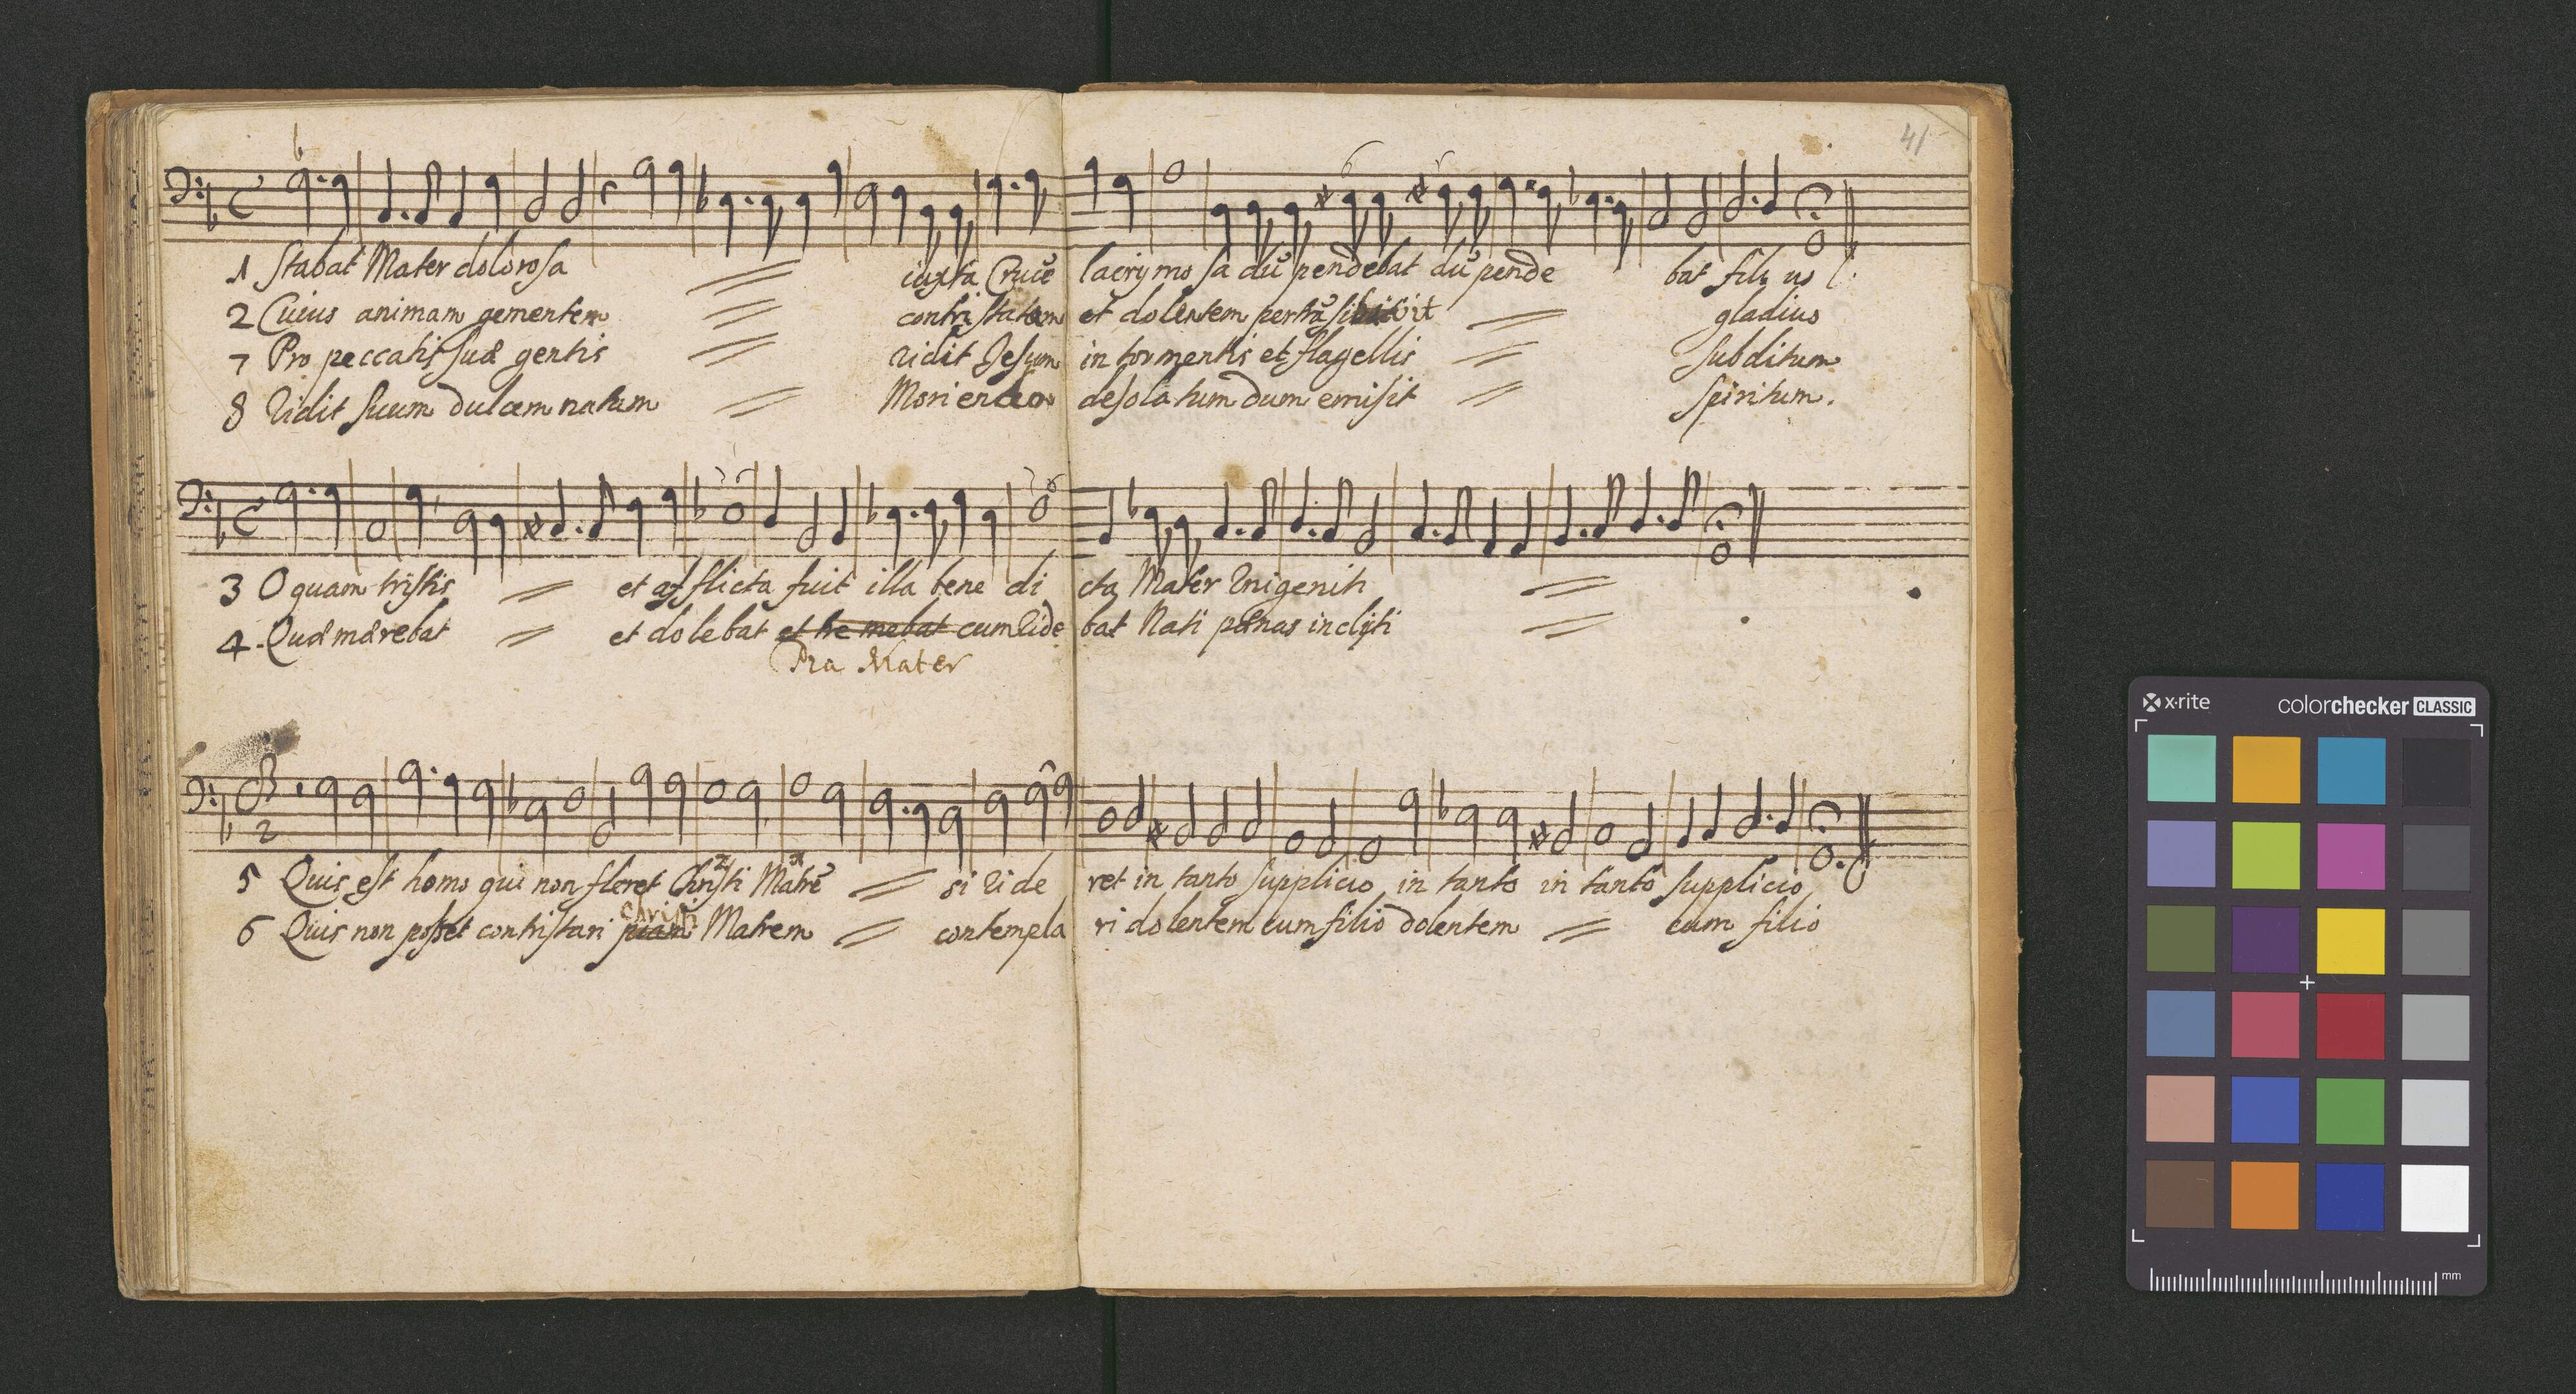 41
1 Stabat Mater dolorosa iuxta Crucē lacrymosa dū pendebat dū pende bat filius
2 Cuius animam gementem contristatam et dolentem pertrāsivit gladius
7 Pro peccatis suæ gentis Vidit Jesum in tormentis et flagellis subditum
8 Vidit suum dulcem natum Moriendo desolatum dum emisit spiritum.
3 O quam tristis et afflicta fuit illa bene di cta Mater Vnigeniti
4. Quæ mærebat et dolebat et tremebat cum Vide bat Nati pænas inclyti
Pia Mater
2
5 Quis est homo qui non fleret Christi Matrē si Vide ret in tanto supplicio in tanto in tanto supplicio
christi
6 Quis non posset contristari piam Matrem contempla ri dolentem cum filio dolentem cum filio
x·rite colorchecker CLASSIC
mm